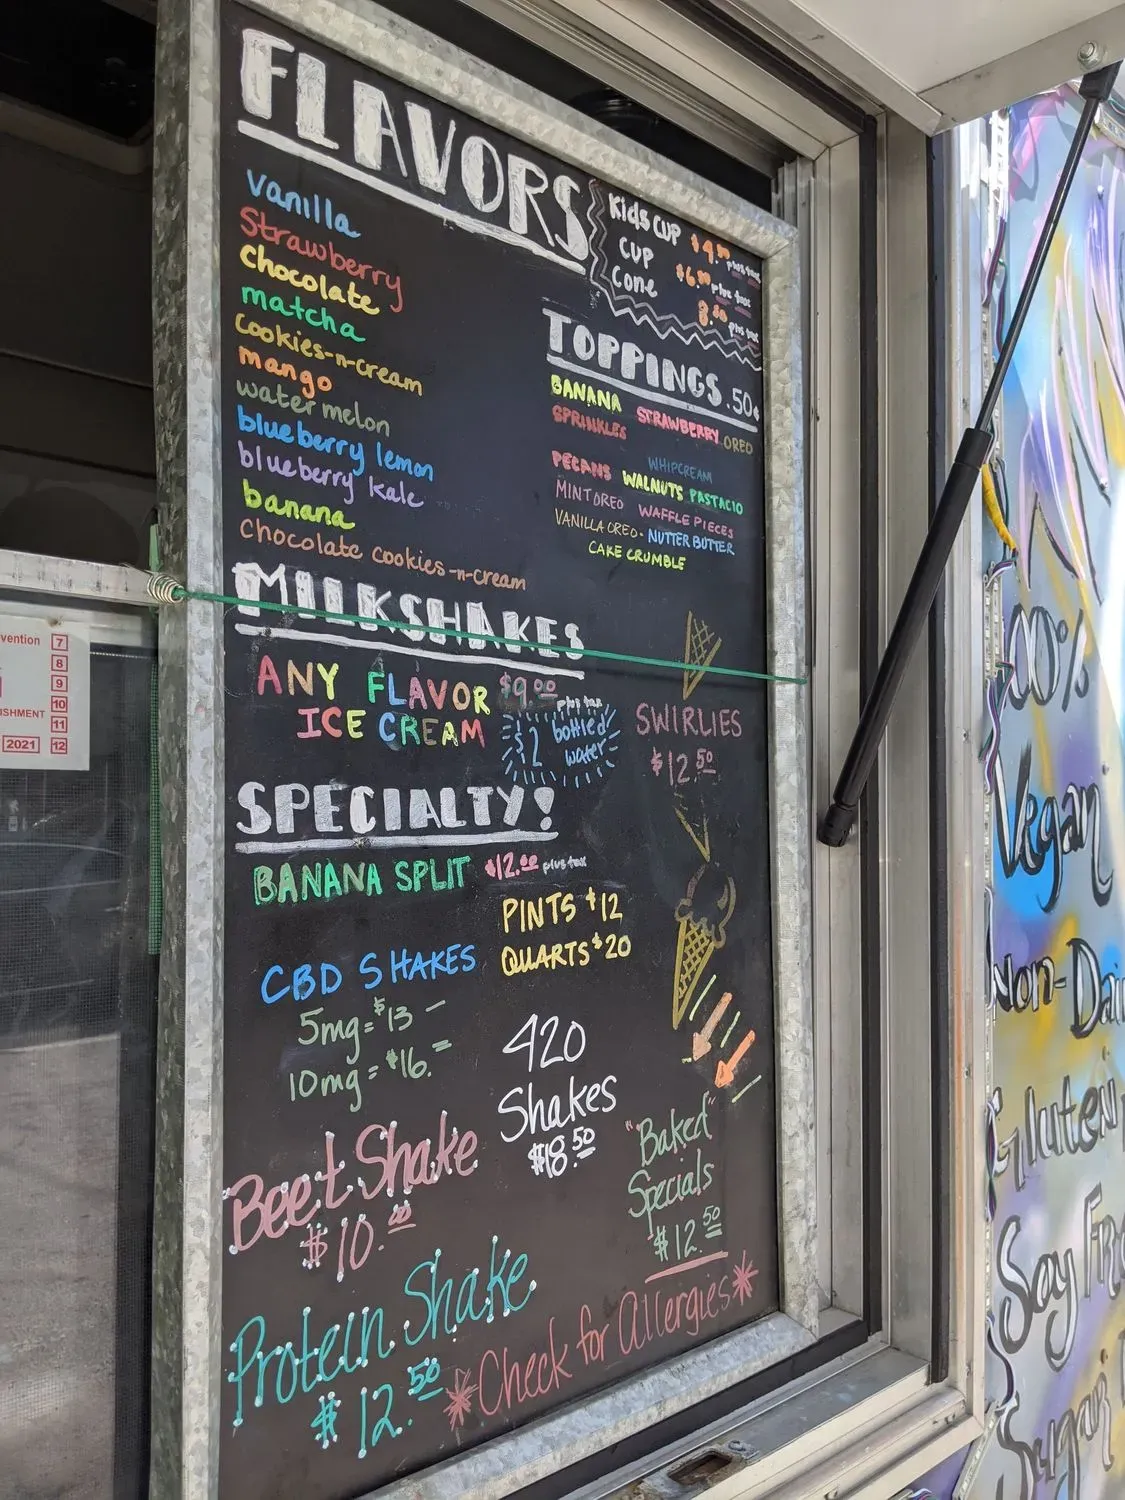 FLAVORS
vanilla
Strawberry
Chocolate
matcha
Cookies-n-cream
mango
watermelon
blueberry lemon
blueberry kale
banana
Chocolate cookies-n-cream
Kids CUP $4.00 plus tax
CUP $6.00 plus tax
Cone 8.50 plus tax
TOPPINGS .50¢
BANANA STRAWBERRY OREO
SPRINKLES
PECANS WHIPCREAM
WALNUTS PASTACIO
MINT OREO WAFFLE PIECES
VANILLA OREO · NUTTER BUTTER
CAKE CRUMBLE
MILKSHAKES
ANY FLAVOR $9.00 plus tax
ICE CREAM
$2 bottled
water
SWIRLIES
$12.50
SPECIALTY!
BANANA SPLIT $12.00 plus tax
PINTS $12
QUARTS $20
CBD SHAKES
5mg = $13
10mg = $16.
420
Shakes
$18.50
"Baked"
Specials
$12.50
Beet Shake
$10.00
Protein Shake
$12.50
*Check for Allergies*
7
8
9
10
11
2021 12
100%
Vegan
Soy
Sugar